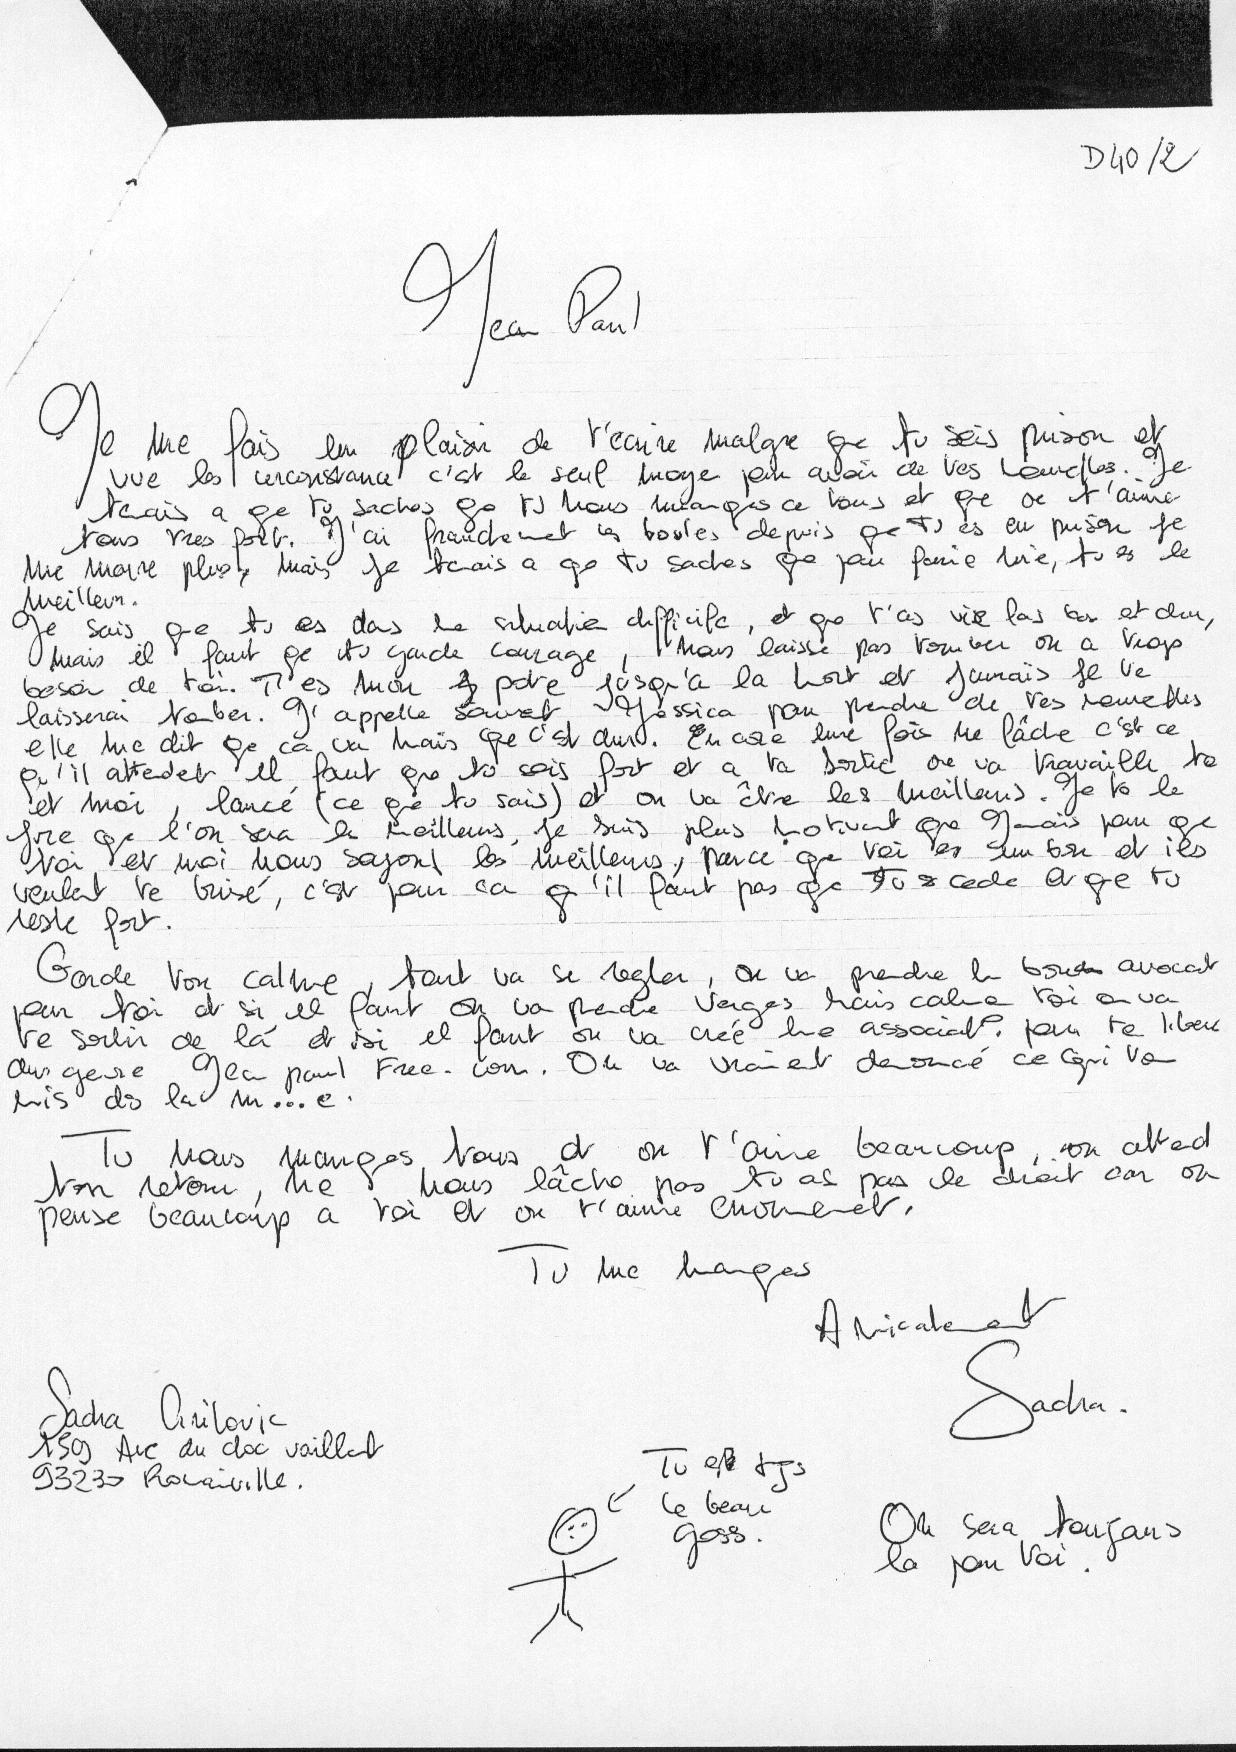 D40/2
Jean Paul
Je me fais un plaisir de t'ecrire malgre que tu sois prison et
vue les circonstance c'est le seul moye pour avoir de tes nouvelles. Je
tenais a qe tu saches qe tu nous manques ce tous et qe on t'aime
tous tres fort. J'ai franchement les boules depuis qe tu es en prison je
me marre plus, mais je tenais a qe tu saches qe pour famie mie, tu es le
meilleur.
Je sais qe tu es dans ne situatio difficile, et qe t'as vie las bas et dur,
mais il faut qe tu garde courage, nous laisse pas tomber on a trop
besoin de toi. T'es mon pote jusqu'a la mort et jamais je te
laisserai tomber. J'appelle souvet Jessica pour prendre de tes nouvelles
elle me dit qe ca va mais qe c'est dur. Encore une fois ne lâche c'est ce
qu'il attedet il faut qe tu sois fort et a ta sortie on va travaille to
et moi, lancé (ce qe tu sais) et on va être les meilleurs. Je te le
jure qe l'on sera les meilleurs, je suis plus motivant qe jamais pour qe
toi et moi nous soyons les meilleurs, parce qe toi es un bon et ils
veulent te brisé, c'est pour ca q'il faut pas qe tu cede et qe tu
reste fort.
Garde ton calme, tout va se regler, on va prendre le bon avocat
pour toi et si il faut on va prendre Verges mais calme toi on va
te sortir de là et si il faut on va créé une associat° pour te liberé
du genre Jea paul Free.com. On va vraimet denoncé ce qui t'a
mis ds la m...e.
Tu nous manques tous et on t'aime beaucoup, on atted
ton retour, ne nous lâche pas tu as pas le droit car on
pense beaucoup a toi et on t'aime enormemet.
Tu me manques
Amicalement
Sacha.
Sacha
159 Ave du doc vaillant
93230 Romainville.
Tu es tjs
le beau
goss.
On sera toujours
la pour toi.